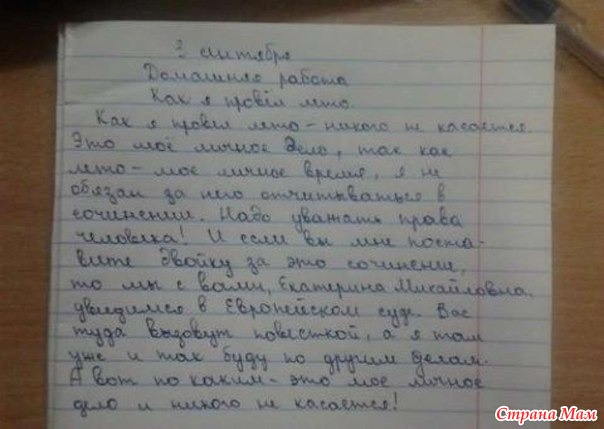 2 сентября
Домашняя работа
Как я провёл лето.
Как я провёл лето – никого не касается.
Это моё личное дело, так как
лето – моё личное время, я не
обязан за него отчитываться в
сочинении. Надо уважать права
человека! И если вы мне поста-
вите двойку за это сочинение,
то мы с вами, Екатерина Михайловна,
увидимся в Европейском суде. Вас
туда вызовут повесткой, а я там
уже и так буду по другим делам.
А вот по каким – это моё личное
дело и никого не касается!
Страна Мам